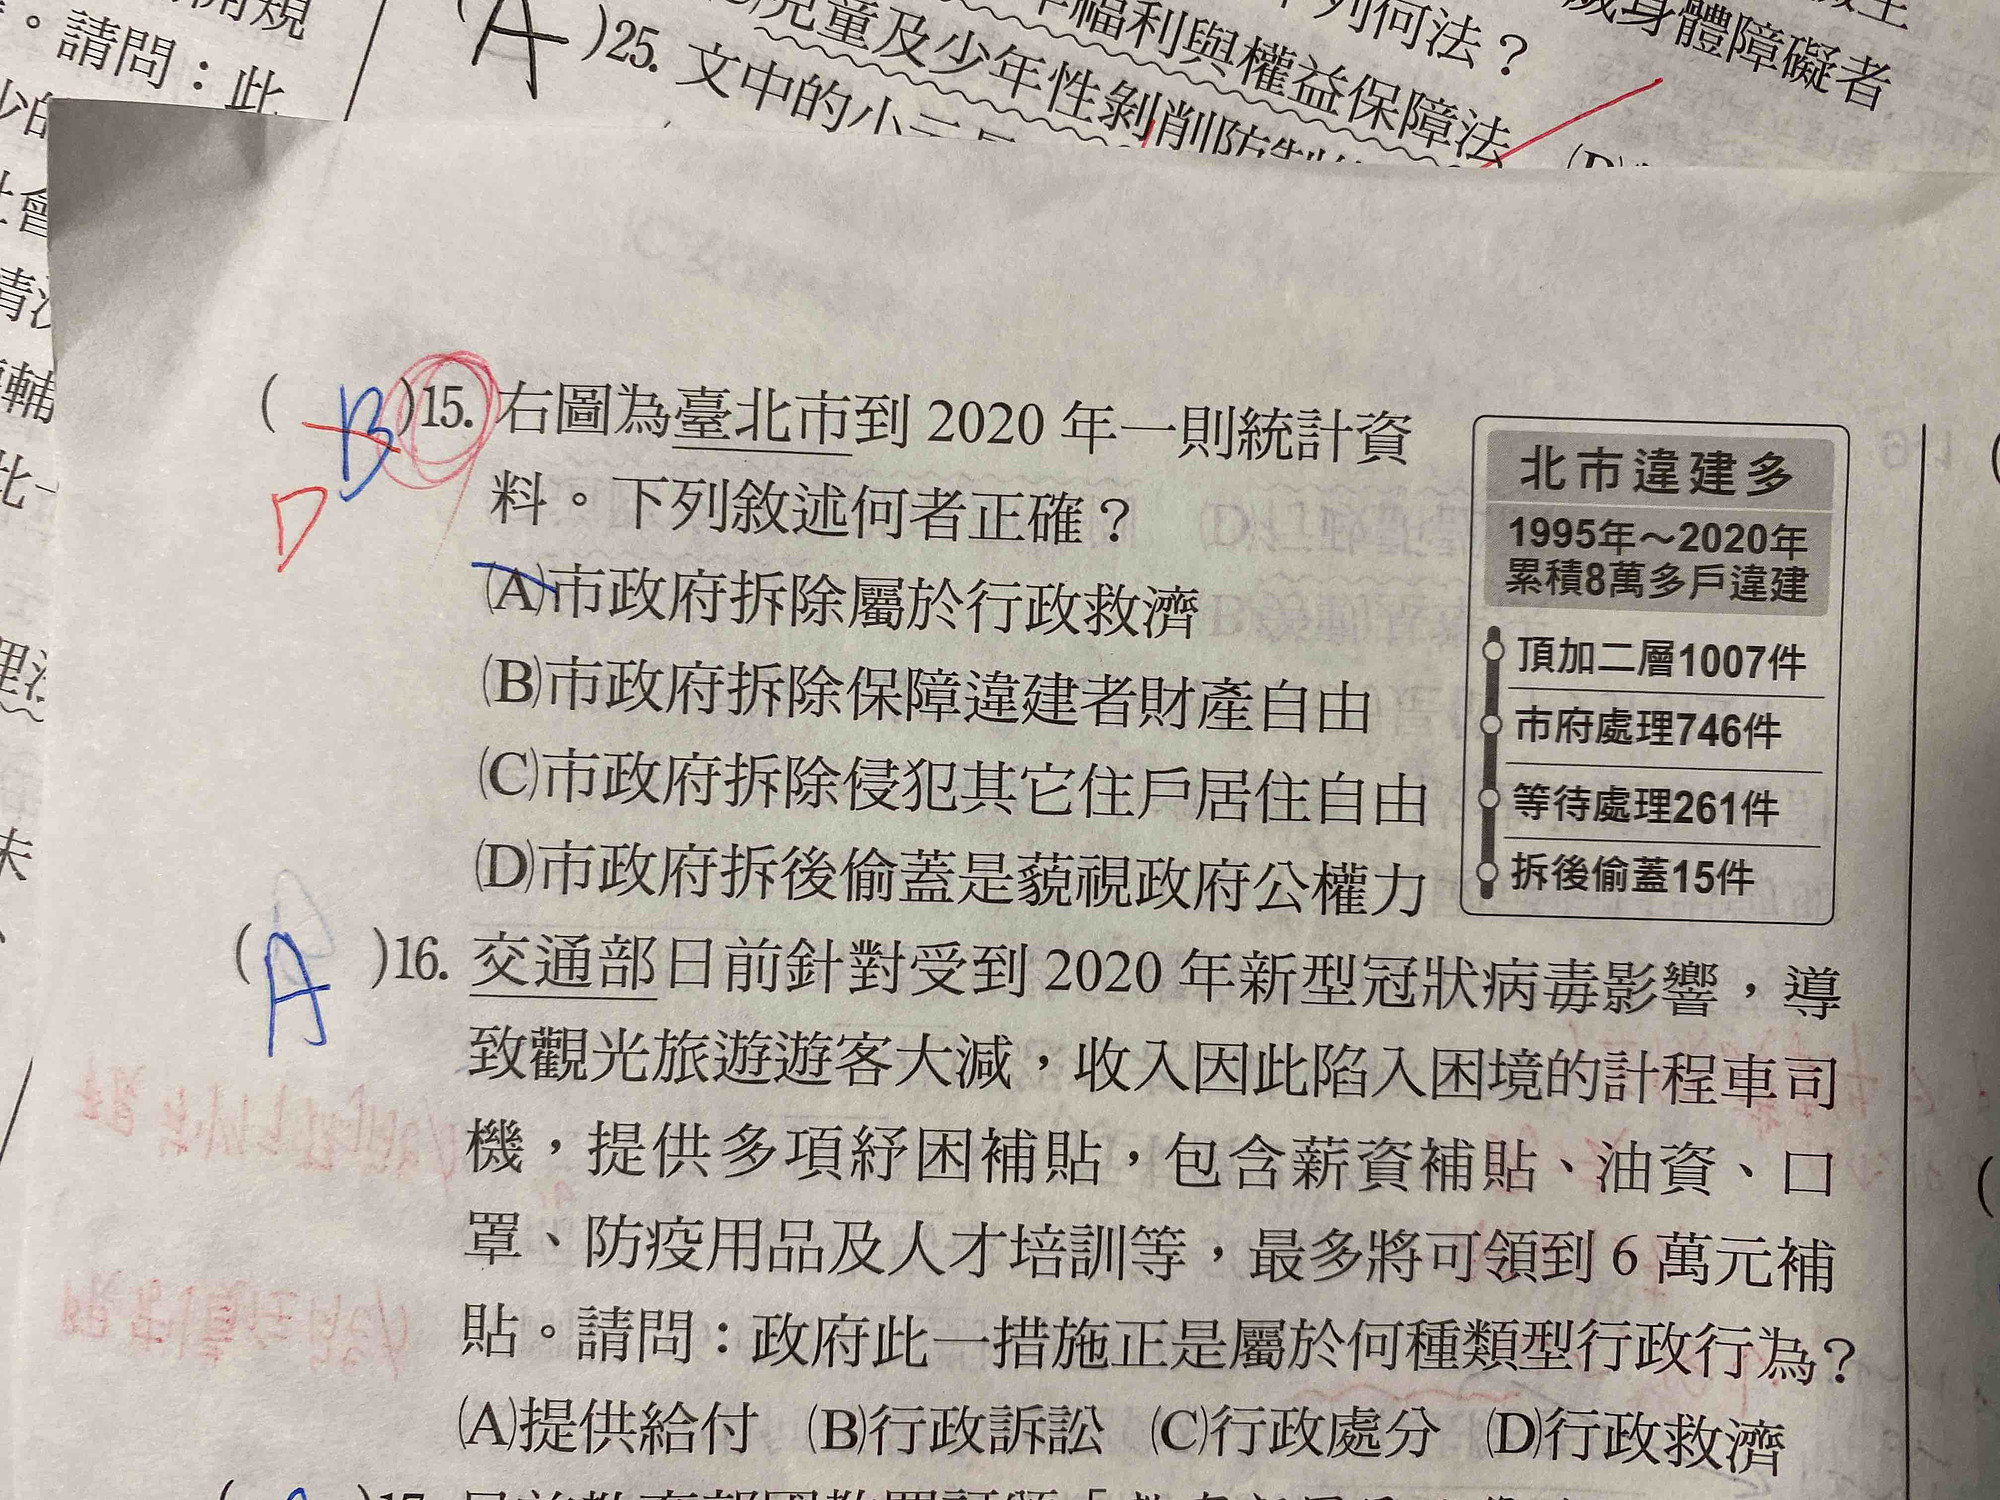 開規
。請問：此
A )25. 文中的小
兒童及少年性剝削防制
福利與權益保障法
列何法？
身體障礙者
社會
輔
( B )15. 右圖為臺北市到 2020 年一則統計資
D
料。下列敘述何者正確？
(A)市政府拆除屬於行政救濟
(B)市政府拆除保障違建者財產自由
(C)市政府拆除侵犯其它住戶居住自由
(D)市政府拆後偷蓋是藐視政府公權力
北市違建多
1995年～2020年
累積8萬多戶違建
頂加二層1007件
市府處理746件
等待處理261件
拆後偷蓋15件
( A )16. 交通部日前針對受到 2020 年新型冠狀病毒影響，導
致觀光旅遊遊客大減，收入因此陷入困境的計程車司
機，提供多項紓困補貼，包含薪資補貼、油資、口
罩、防疫用品及人才培訓等，最多將可領到 6 萬元補
貼。請問：政府此一措施正是屬於何種類型行政行為？
(A)提供給付 (B)行政訴訟 (C)行政處分 (D)行政救濟